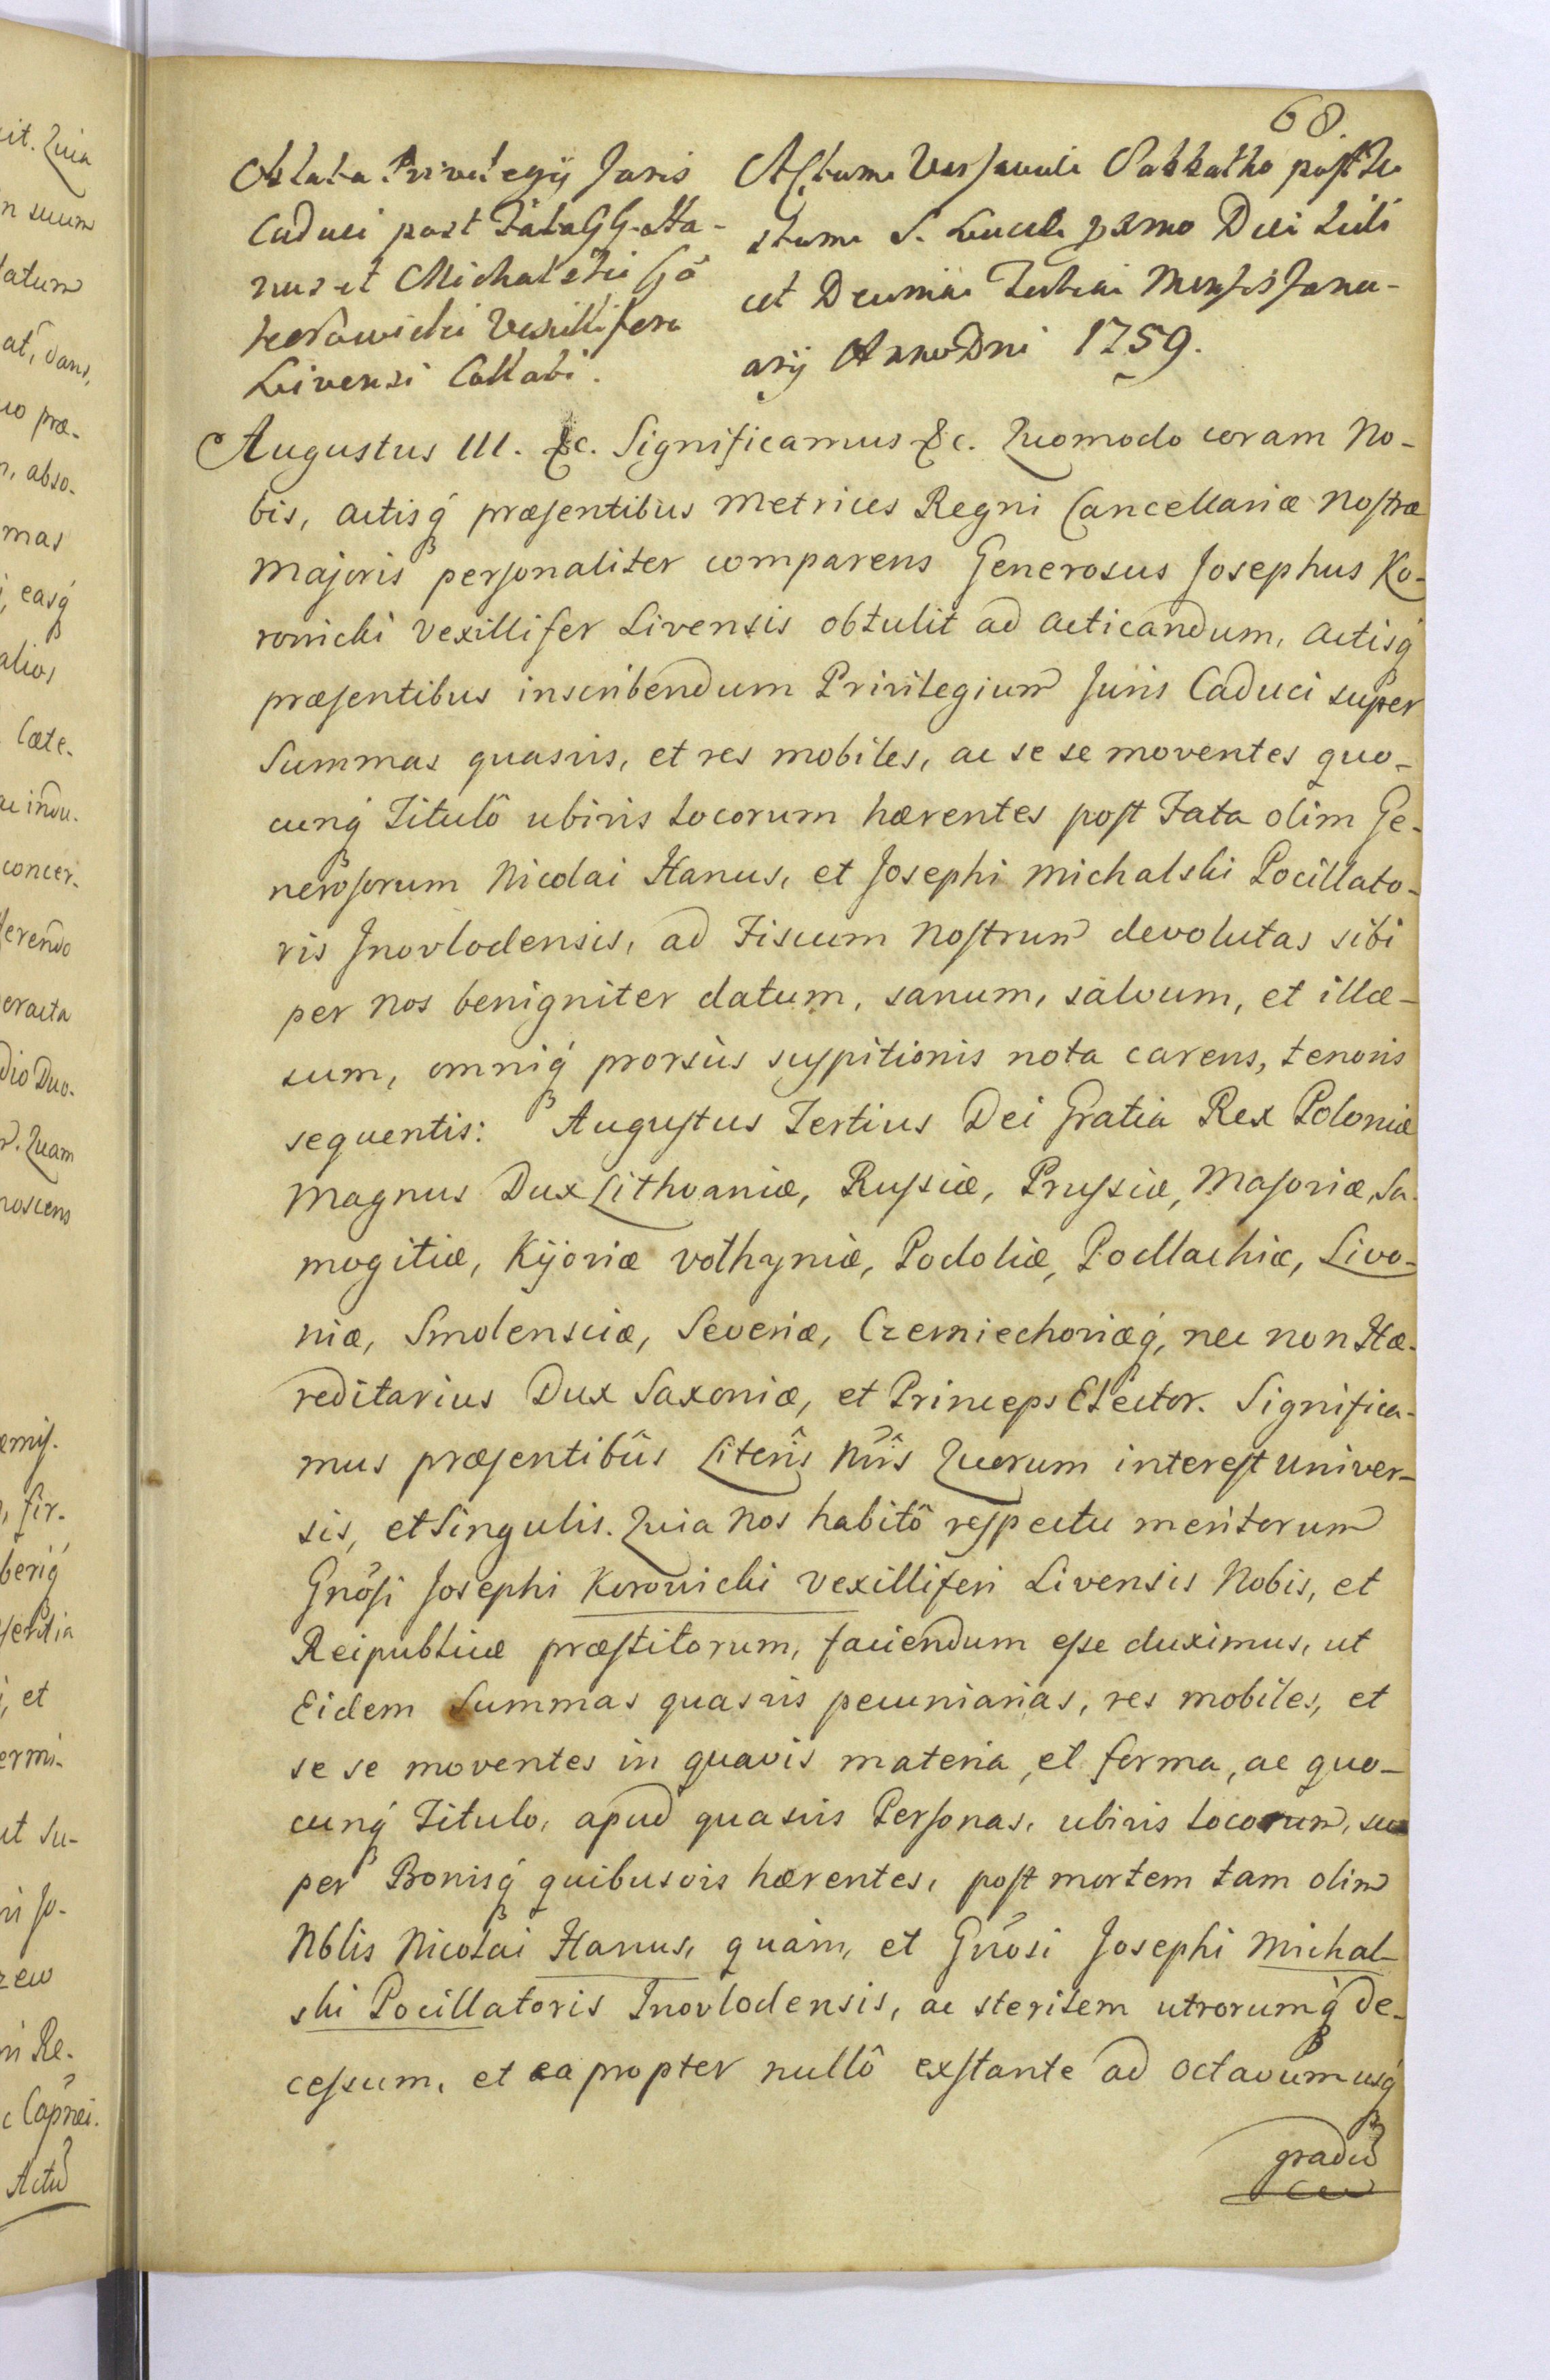 68.
Oblata Privilegij Juris
Caduci post Fata GG. Ha-
nus et Michalski Gõ
Korowicki Vexillifero
Livensi Collati.
Actum Varsaviæ Sabbatho post
S. Luciæ Die
et Mensis Janu-
arij Anno Dni 1759.
Augustus III. &c. Significamus &c. Quomodo coram No-
bis, Actisq́ præsentibus Metrices Regni Cancellariæ Nostræ
Majoris personaliter comparens Generosus Josephus Ko-
rowicki Vexillifer Livensis obtulit ad Acticandum, Actisq́
præsentibus inscribendum Privilegium Juris Caduci super
Summas quasvis, et res mobiles, ac se se moventes quo-
cunq́ Titulô ubivis locorum hærentes post Fata olim Ge-
nerosorum Nicolai Hanus, et Josephi Michalski Pocillato-
ris Jnovlodensis, ad Fiscum Nostrum devolutas sibi
per nos benigniter datum, sanum, salvum, et illæ-
sum, omniq́ prorsùs suspitionis nota carens, tenoris
sequentis: Augustus Tertius Dei Gratia Rex Poloniæ
Magnus Dux Lithvaniæ, Russiæ, Prussiæ, Masoviæ, Sa-
mogitiæ, Kijoviæ Volhyniæ, Podoliæ, Podlachiæ, Livo-
niæ, Smolensciæ, Severiæ, Czerniechoviæq́, nec non Hæ-
reditarius Dux Saxoniæ, et Princeps Elector. Significa-
mus præsentibûs Literîs Nrîs Quorum interest univer-
sis, et Singulis. Quia Nos habitô respectu meritorum
Gnõsi Josephi Korowicki Vexilliferi Livensis Nobis, et
Reipublicæ præstitorum, faciendum esse duximus, ut
Eidem Summas quasvis pecuniarias, res mobiles, et
se se moventes in quavis materia, et forma, ac quo-
cunq́ Titulo, apud quasvis Personas, ubivis locorum, su
per Bonisq́ quibusvis hærentes, post mortem tam olim
Nblis Nicolai Hanus, quàm, et Gnõsi Josephi Michal-
ski Pocillatoris Jnovlodensis, ac sterilem utrorumq́ de-
cessum, et ea propter nullô exstante ad octavum usq́
gradũ